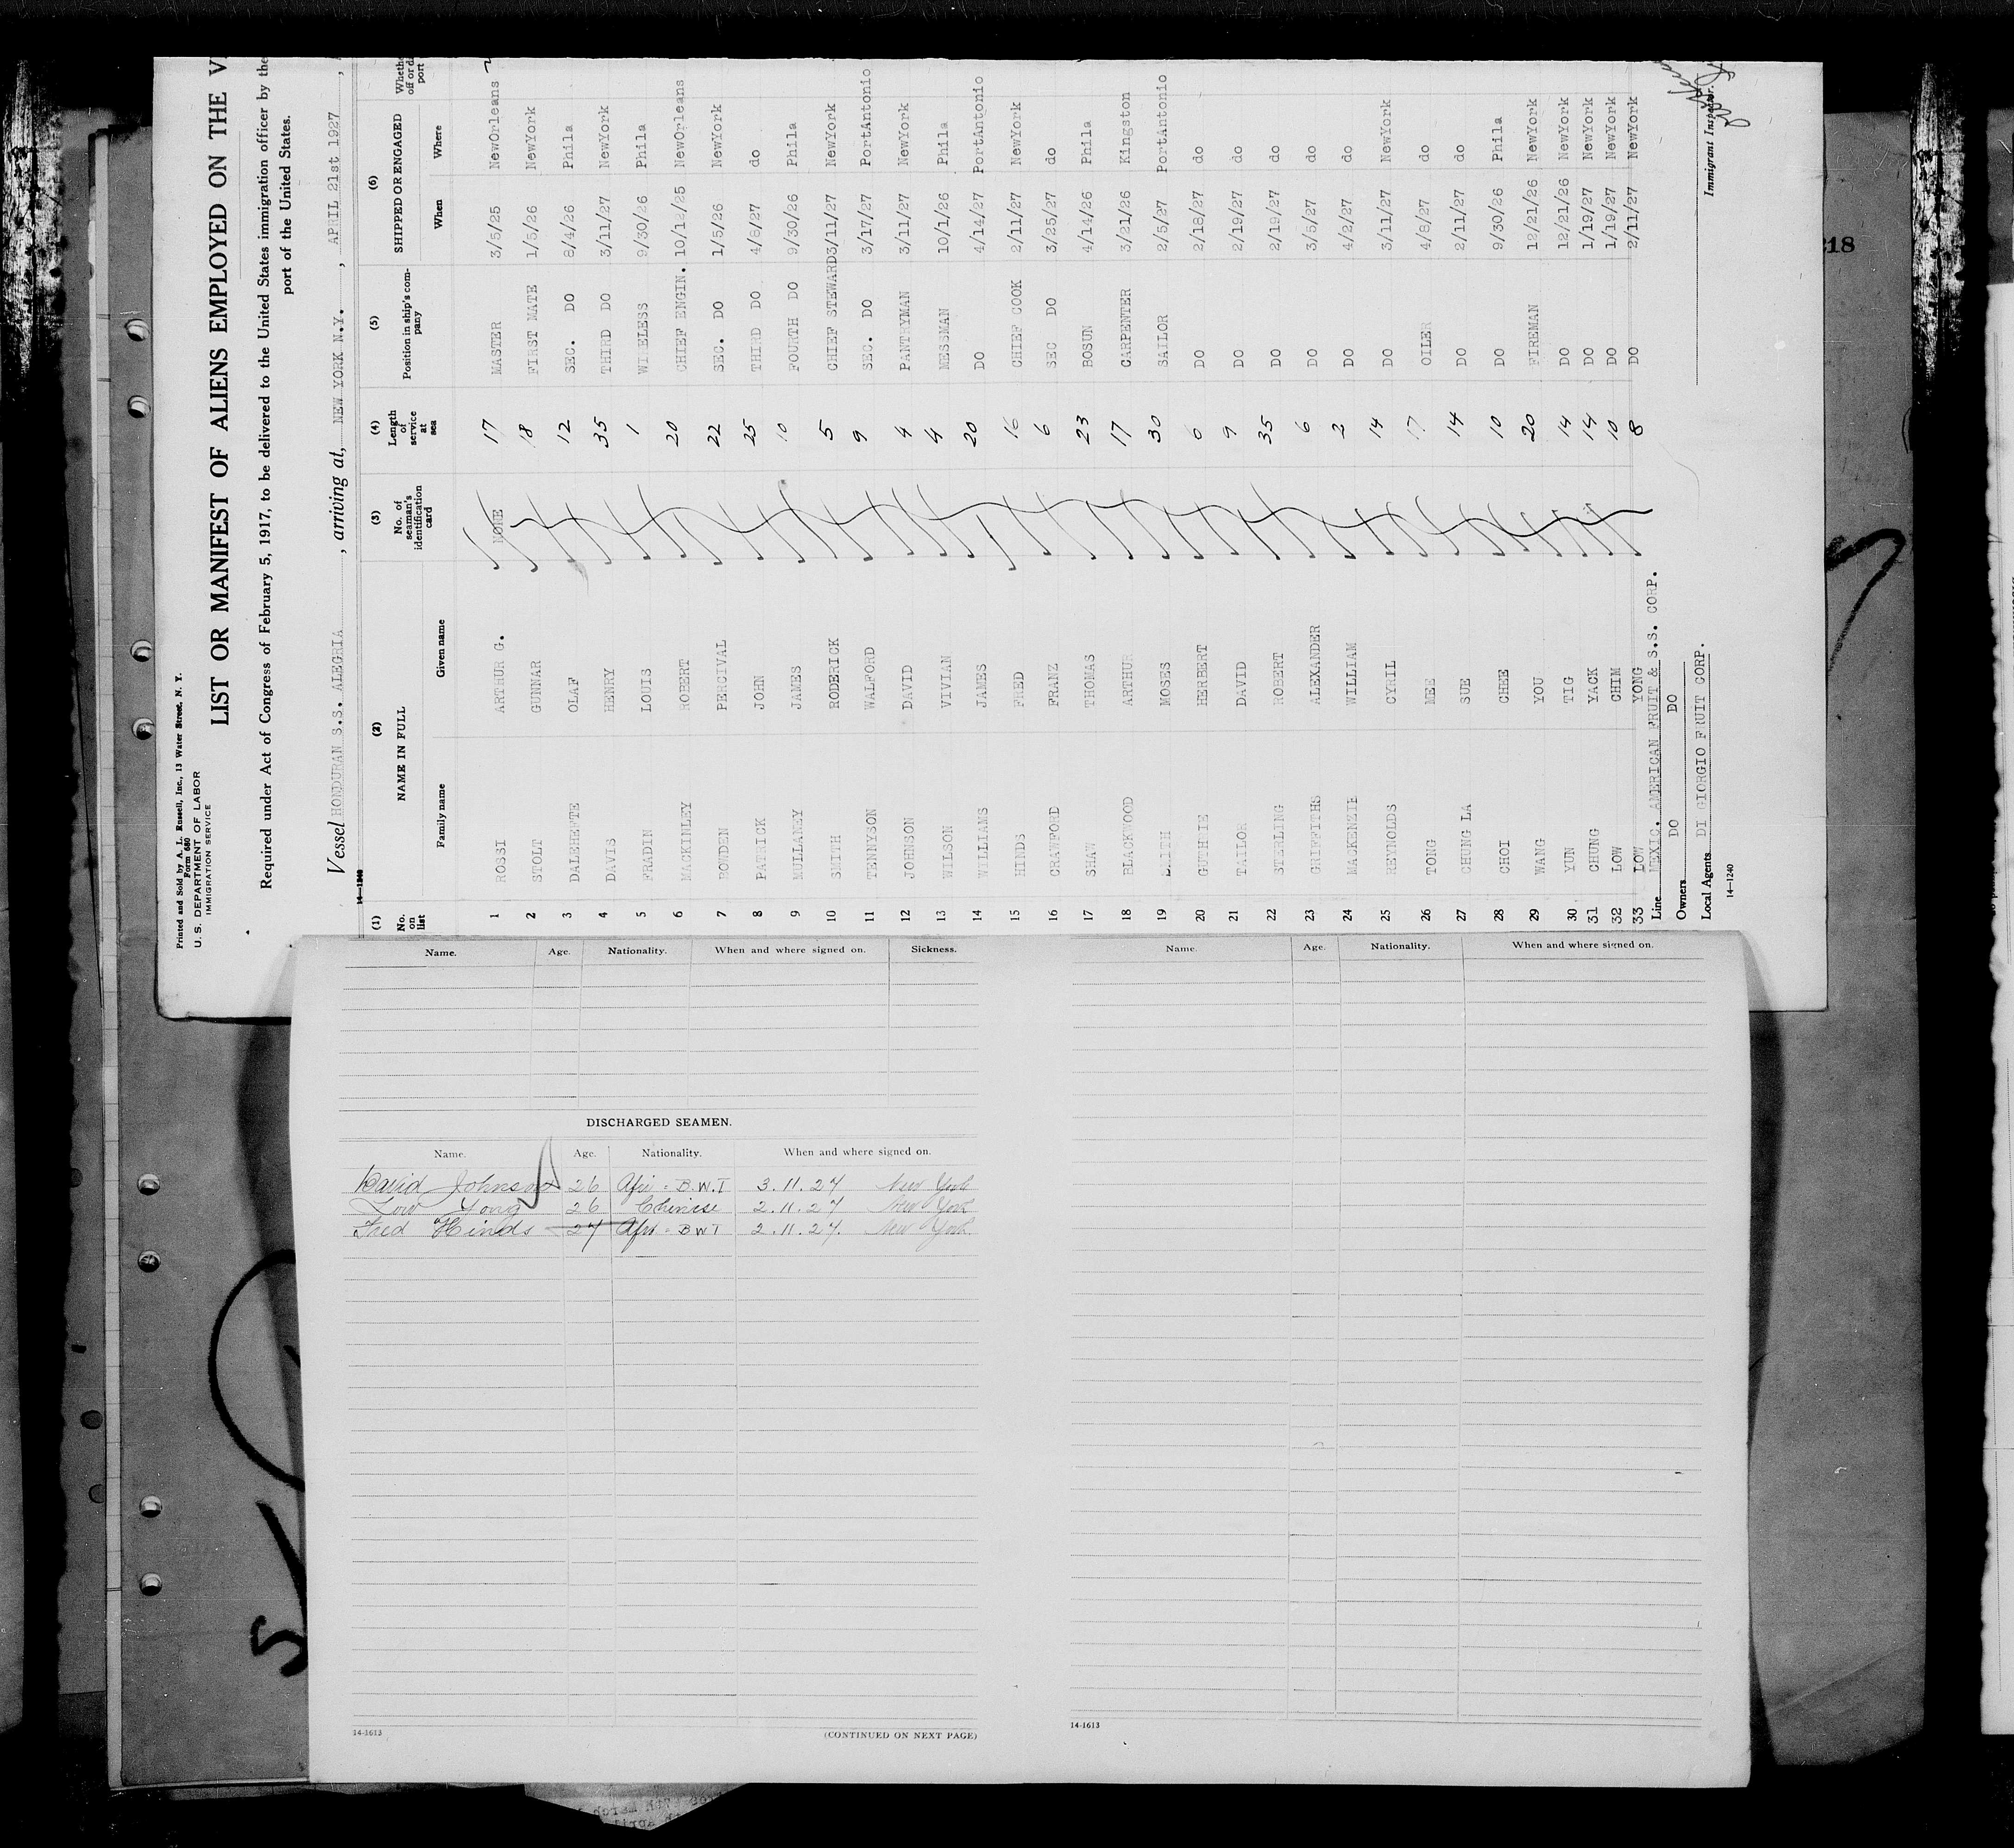 Printed and Sold by A. L. Russell, Inc., 13 Water Street, N. Y.
Form 680
U. S. DEPARTMENT OF LABOR
IMMIGRATION SERVICE
LIST OR MANIFEST OF ALIENS EMPLOYED ON THE
Required under Act of Congress of February 5, 1917, to be delivered to the United States immigration officer by the
port of the United States.
Vessel HONDURAN S.S. ALEGRIA , arriving at, NEW YORK N.Y. , APRIL 21st 1927 ,
14—1240
(1) (2) (3) (4) (5) (6)
No. on list NAME IN FULL No. of seaman's identification card Length of service at sea Position in ship's com- pany SHIPPED OR ENGAGED
Family name Given name When Where
1 ROSSI ARTHUR G. NONE 17 MASTER 3/5/25 NewOrleans
2 STOLT GUNNAR 18 FIRST MATE 1/5/26 NewYork
3 DALEHEFTE OLAF 12 SEC. DO 8/4/26 Phila
4 DAVIS HENRY 35 THIRD DO 3/11/27 NewYork
5 FRADIN LOUIS 1 WI ELESS 9/30/26 Phila
6 MACKINLEY ROBERT 20 CHIEF ENGIN. 10/12/25 NewOrleans
7 BOWDEN PERCIVAL 22 SEC. DO 1/5/26 NewYork
8 PATRICK JOHN 25 THIRD DO 4/8/27 do
9 MULLANEY JAMES 10 FOURTH DO 9/30/26 Phila
10 SMITH RODERICK 5 CHIEF STEWARD 3/11/27 NewYork
11 TENNYSON WALFORD 9 SEC. DO 3/17/27 PortAntonio
12 JOHNSON DAVID 4 PANTRYMAN 3/11/27 NewYork
13 WILSON VIVIAN 4 MESSMAN 10/1/26 Phila
14 WILLIAMS JAMES 20 DO 4/14/27 PortAntonio
15 HINDS FRED 16 CHIEF COOK 2/11/27 NewYork
16 CRAWFORD FRANZ 6 SEC DO 3/25/27 do
17 SHAW THOMAS 23 BOSUN 4/14/26 Phila
18 BLACKWOOD ARTHUR 17 CARPENTER 3/21/26 Kingston
19 MOSES 30 SAILOR 2/5/27 PortAntonio
20 GUTHRIE HERBERT 6 DO 2/18/27 do
21 TAILOR DAVID 9 DO 2/19/27 do
22 STERLING ROBERT 35 DO 2/19/27 do
23 GRIFFITHS ALEXANDER 6 DO 3/5/27 do
24 MACKENZIE WILLIAM 2 DO 4/2/27 do
25 REYNOLDS CYRIL 14 DO 3/11/27 NewYork
26 TONG MEE 17 OILER 4/8/27 do
27 CHUNG LA SUE 14 DO 2/11/27 do
28 CHOI CHEE 10 DO 9/30/26 Phila
29 WANG YOU 20 FIREMAN 12/21/26 NewYork
30 YUN TIG 14 DO 12/21/26 NewYork
31 CHUNG YACK 14 DO 1/19/27 NewYork
32 LOW CHIM 10 DO 1/19/27 NewYork
33 LOW YONG 8 DO 2/11/27 NewYork
Line MEXIC. AMERICAN FRUIT & S.S. CORP.
Owners DO DO
Local Agents DI GIORGIO FRUIT CORP.
Immigrant Inspector.
14—1240
18
Name. Age. Nationality. When and where signed on. Sickness.
DISCHARGED SEAMEN.
Name. Age. Nationality. When and where signed on.
David Johnson 26 Afri - B.W.I 3.11.27 New York
Low Yong 26 Chinese 2.11.27 New York
Fred Hinds 27 Afri - B W I 2.11.27. New York
14-1613
(CONTINUED ON NEXT PAGE)
Name. Age. Nationality. When and where signed on.
14-1613